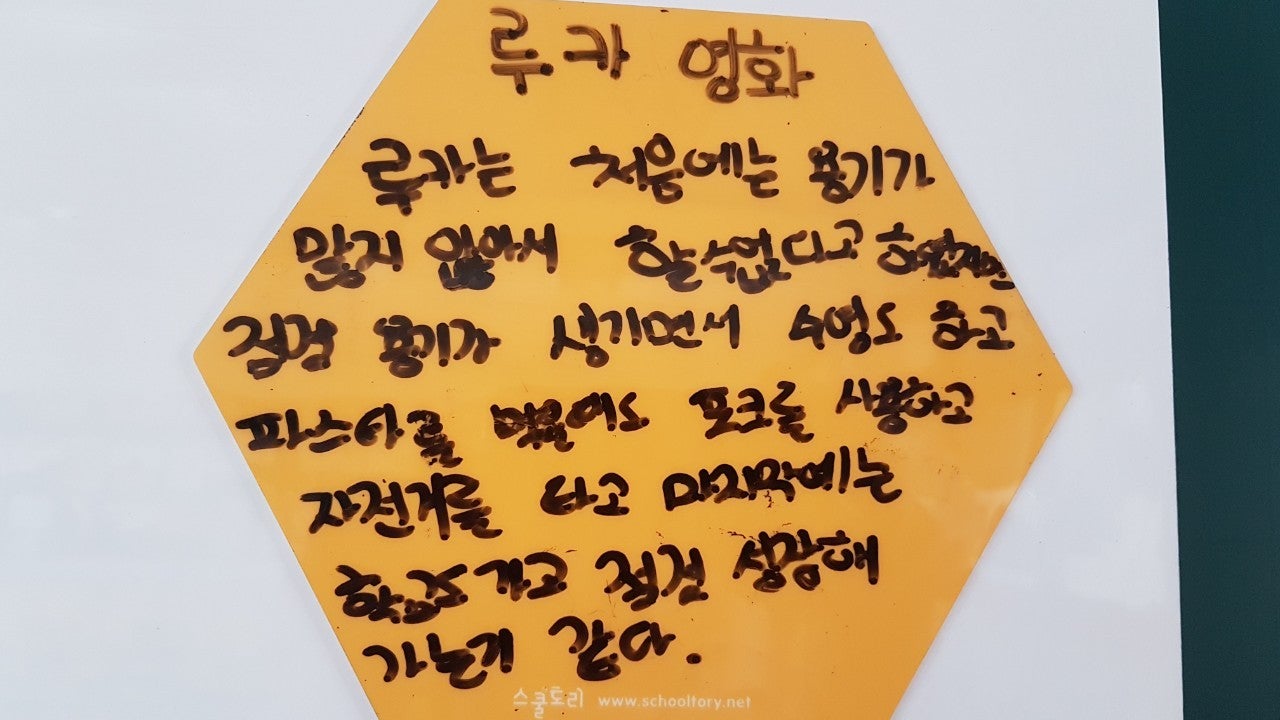 루카 영화
루카는 처음에는 용기가
많지 않아서 할수없다고 하였지만
점점 용기가 생기면서 수영도 하고
파스타를 먹을때도 포크를 사용하고
자전거를 타고 마지막에는
학교도 가고 점점 성장해
가는거 같다.
스쿨토리 www.schooltory.net